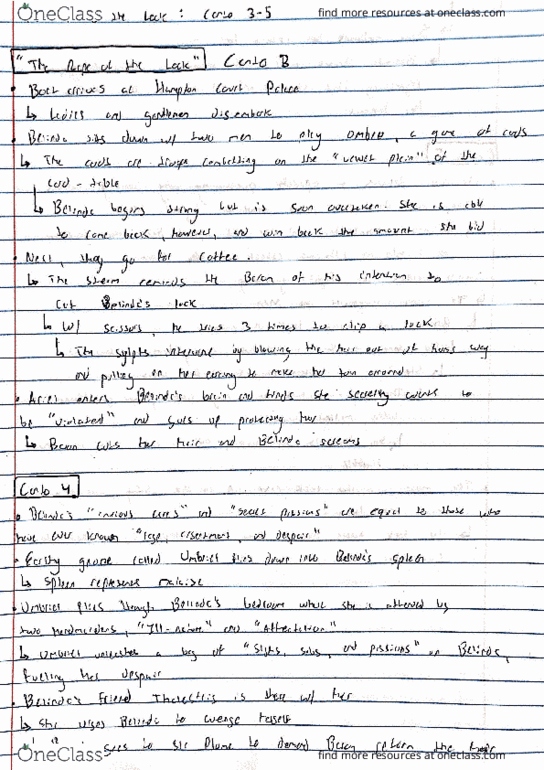 OneClass the Lock : Canto 3-5 find more resources at oneclass.com
"The Rape of the Lock" Canto 3
• Boat arrives at Hampton Court Palace
↳ Ladies and gentlemen disembark
• Belinda sits down w/ two men to play ombre, a game of cards
↳ The cards are troops combatting on the "velvet plain" of the
card-table
↳ Belinda begins strong but is soon overtaken. She is able
to come back, however, and win back the amount she bid
• Next, they go for coffee.
↳ The steam reminds the Baron of his intention to
cut Belinda's lock
↳ w/ scissors, he tries 3 times to clip a lock
↳ The sylphs intervene by blowing the hair out of harms way
and pulling on her earring to make her turn around
• Ariel enters Belinda's brain and finds she secretly wants to
be "violated" and gives up protecting her
↳ Baron cuts her hair and Belinda screams
Canto 4
• Belinda's "anxious cares" and "secret passions" are equal to those who
have ever known "rage, resentment, and despair"
• Earthy gnome called Umbriel flies down into Belinda's spleen
↳ spleen represents
• Umbriel flies through Belinda's bedroom where she is attended by
two handmaidens, "Ill-nature" and "Affectation"
↳ Umbriel unleashes a bag of "sighs, sobs, and passions" on Belinda,
fueling her despair
• Belinda's friend Thalestris is there w/ her
↳ she urges Belinda to avenge herself
OneClass goes to Sir Plume to demand Baron return the hair
find more resources at oneclass.com